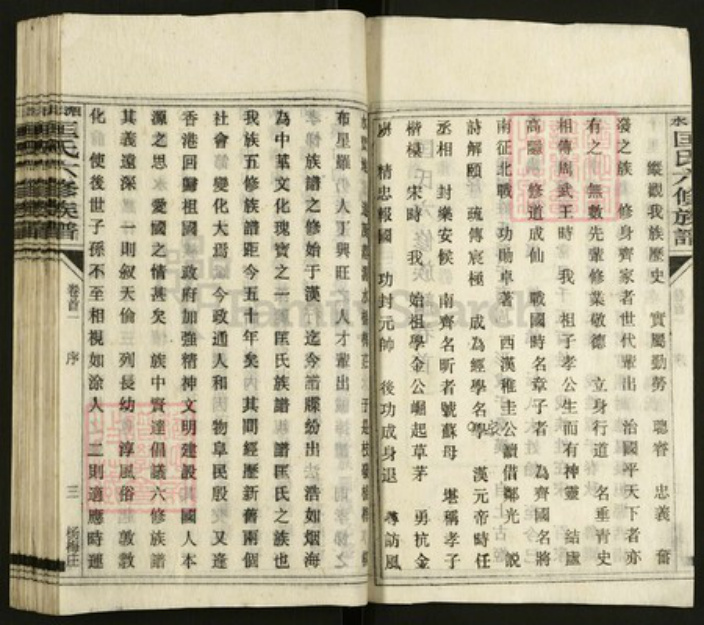 匡氏六修族譜
縱觀我族歷史 實屬勤勞 聰睿 忠義 奮
發之族 修身齊家者世代輩出 治國平天下者亦
有之 無數先輩修業敬德 立身行道 名垂青史
相傳周武王時 我 祖子孝公生而有神靈 結廬
高隱 修道成仙 戰國時名章子者 為齊國名將
南征北戰 功勛卓著 西漢稚圭公讀借鄰光 說
詩解頤 疏傳宸極 成為經學名 漢元帝時任
丞相 封樂安候 南齊名昕者號蘇母 堪稱孝子
楷模 宋時 我 始祖學金公崛起草茅 勇抗金
精忠報國 功封元帥 後功成身退 尋訪風
布星羅 人丁興旺 人才輩出
族譜之修始于漢 迄今譜牒紛出 浩如烟海
為中華文化瑰寶之一 匡氏族譜 譜匡氏之族也
我族五修族譜距今五十年矣 其間經歷新舊兩個
社會 變化大焉 今政通人和 物阜民殷 又逢
香港回歸祖國 政府加強精神文明建設 國人本
源之思 愛國之情甚矣 族中賢達倡議六修族譜
其義遠深 一則叙天倫 列長幼 淳風俗 敦教
化 使後世子孫不至相視如涂人 二則適應時運
匡氏六修族譜
卷首一
序
三
杨梅庄